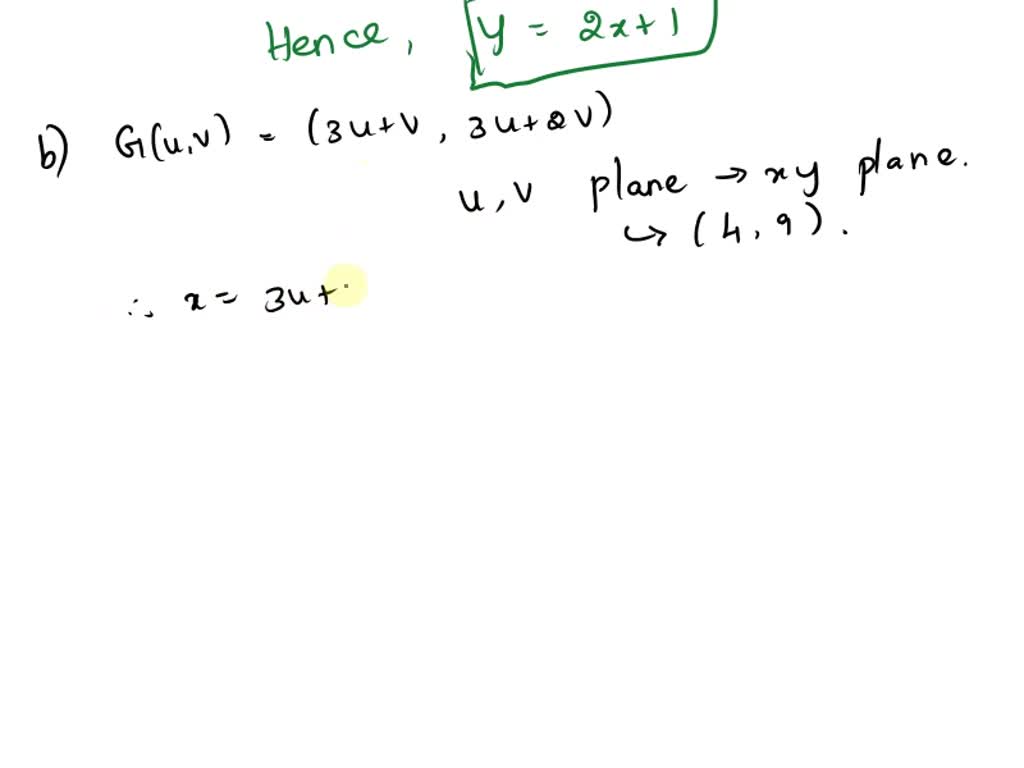 Hence, y = 2x+1
b) G(u,v) = (3u+v, 3u+2v)
u,v plane → xy plane.
↳ (4,9).
∴ x = 3u+